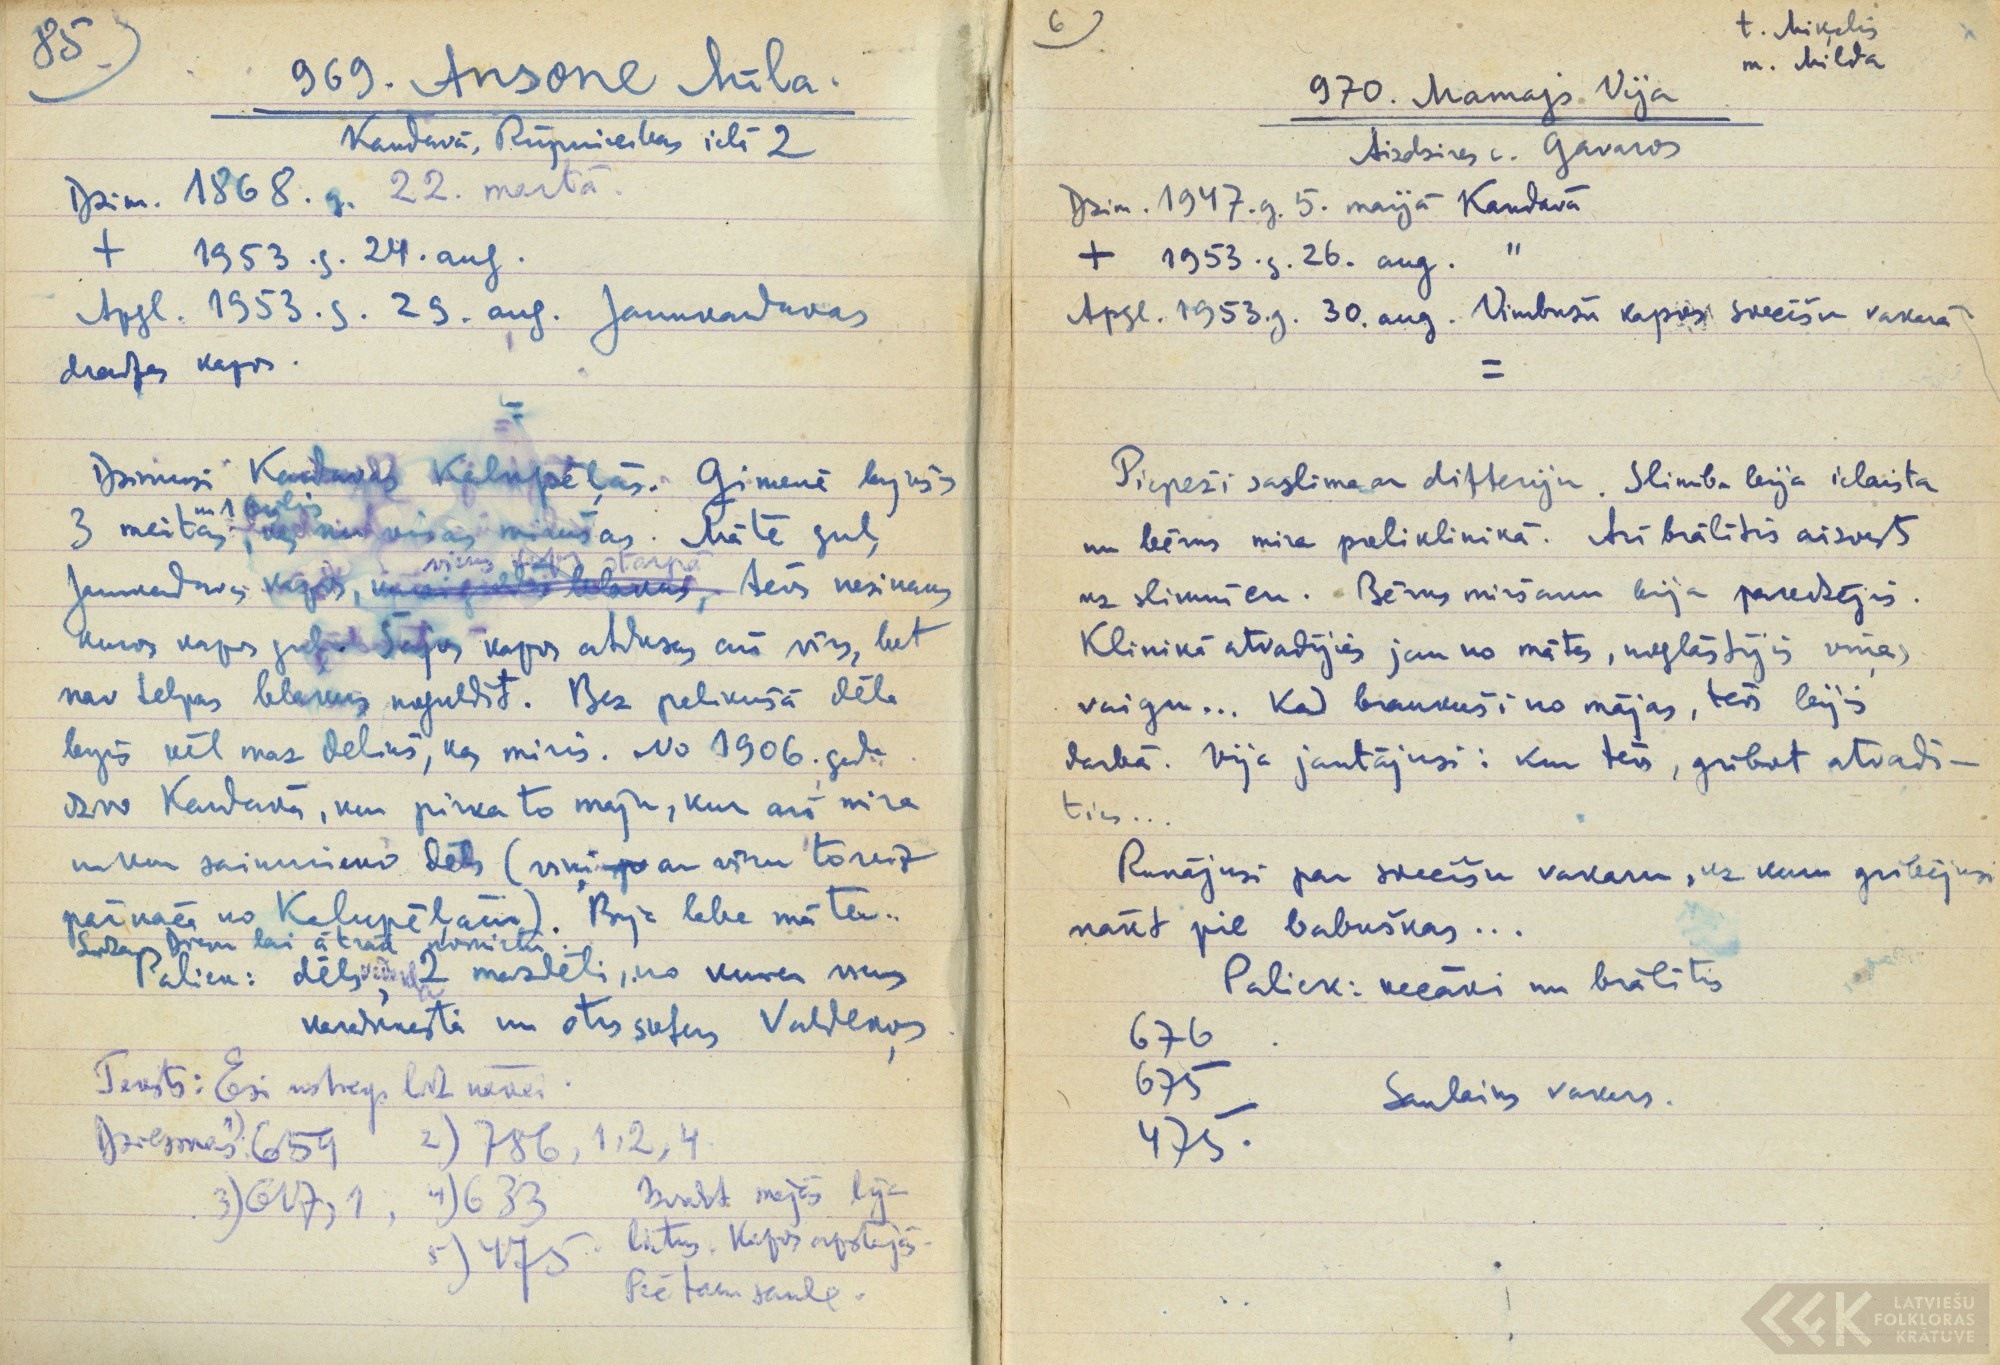 85.
969. Ansone Mīla.
Kandavā, Rūpniecības ielā 2
Dzim. 1868. g. 22. martā.
+ 1953. g. 24. aug.
Apgl. 1953. g. 29. aug. Jaunkandavas
draudzes kapos.
=
Dzimusi Kandavas Kalnpēļās. Ģimenē bijušas
un 1 brālis
3 meitas, kas nu visas mirušas. Māte guļ
vienu kapu starpā
Jaunkandavas kapos, blakus, tēvs nezinams
kuros kapos guļ. Šajos kapos atdusas arī vīrs, bet
nav telpas blakus noguldīt. Bez palikušā dēla
bijis vēl maz dēliņš, kas miris. No 1906. gada
dzīvo Kandavā, kur pirka to māju, kur arī mira
un kur saimnieko dēls (viņi ar vīru toreiz
pārnāca no Kalnpēļām). Bija laba māte..
Lūdza Dievu lai ātrāk nomirtu.
Paliek: dēls, vedekla 2 mazdēli, no kuriem viens
karadienestā un otrs šofers Valdeķos.
Teksts: Esi ustīcīgs līdz nāvei.
Dziesmas: 1) 659 2) 786, 1, 2, 4.
3) 617, 1, 4) 633 Izvadot mājās lija
5) 475. lietus. Kapos apstājās.
Pēc tam saule.
6
t. Miķelis
m. Milda
970. Mamajs Vija
Aizdzires c. Gavaros
Dzim. 1947. g. 5. maijā Kandavā
+ 1953. g. 26. aug. "
Apgl. 1953. g. 30. aug. Vimbušu kapos svecīšu vakarā
=
Piepeži saslima ar difteriju. Slimība bija ielaista
un bērns mira poliklinikā. Arī brālītis aizvests
uz slimnīcu. Bērns miršanu bija paredzējis.
Klinikā atvadījies jau no mātes, noglāstījis viņas
vaigu... Kad braukuši no mājas, tēvs bijis
darbā. Vija jautājusi: kur tēvs, gribot atvadī-
ties...
Runājusi par svecīšu vakaru, uz kuru gribējusi
nākt pie babuškas...
Paliek: vecāki un brālītis
676
675
475. Saulains vakars.
LATVIEŠU
FOLKLORAS
KRĀTUVE